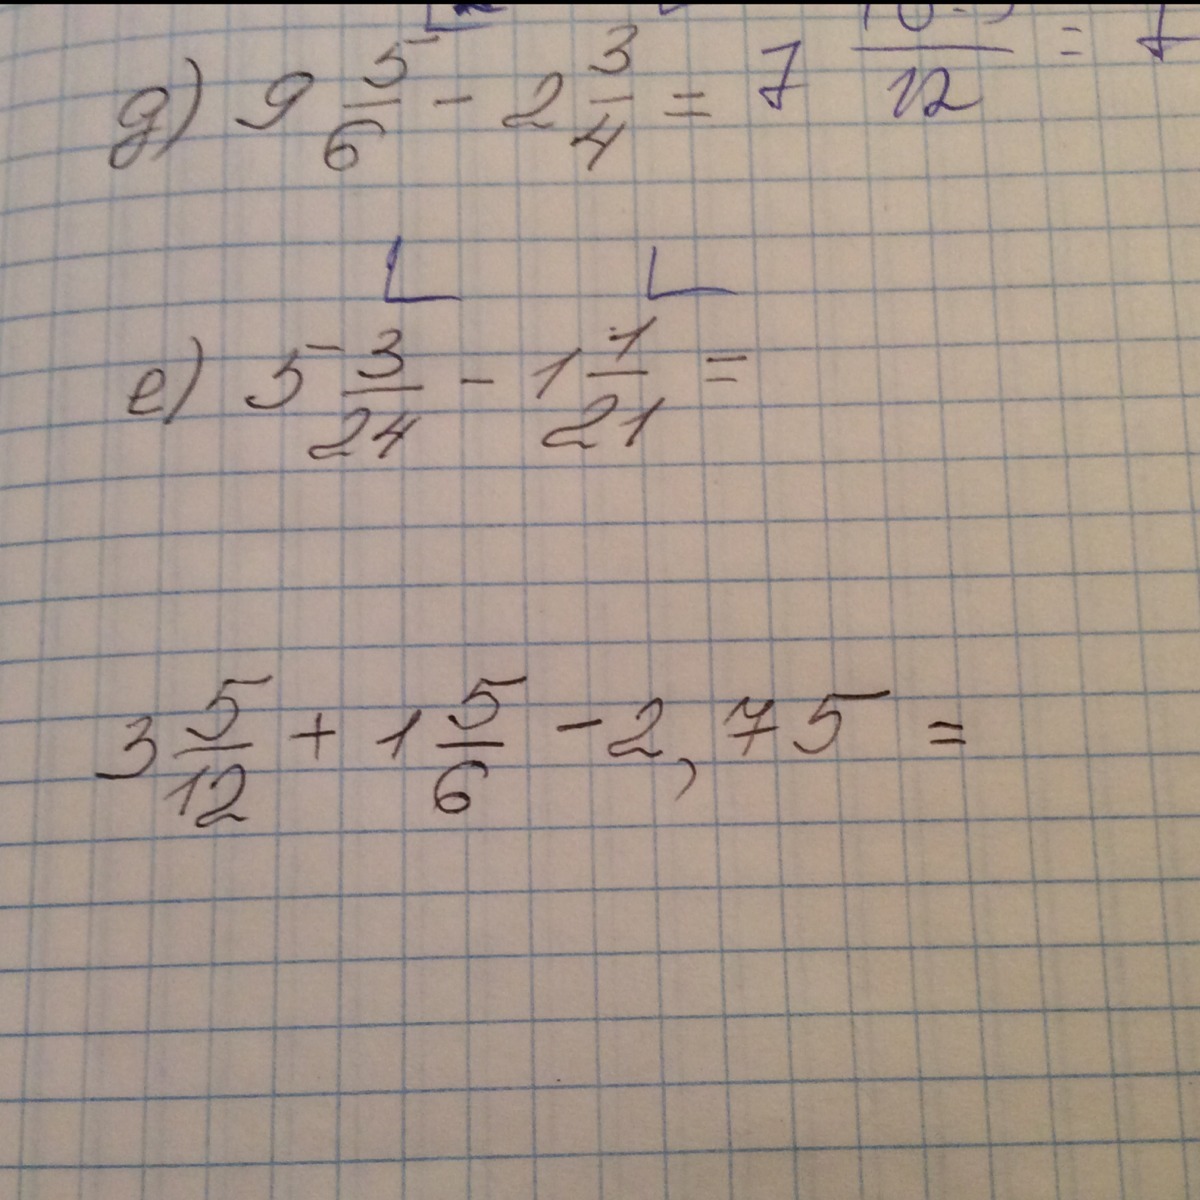 g) 9 5/6 - 2 3/4 = 7 /12 =
e) 5 3/24 - 1 1/21 =
3 5/12 + 1 5/6 - 2,75 =